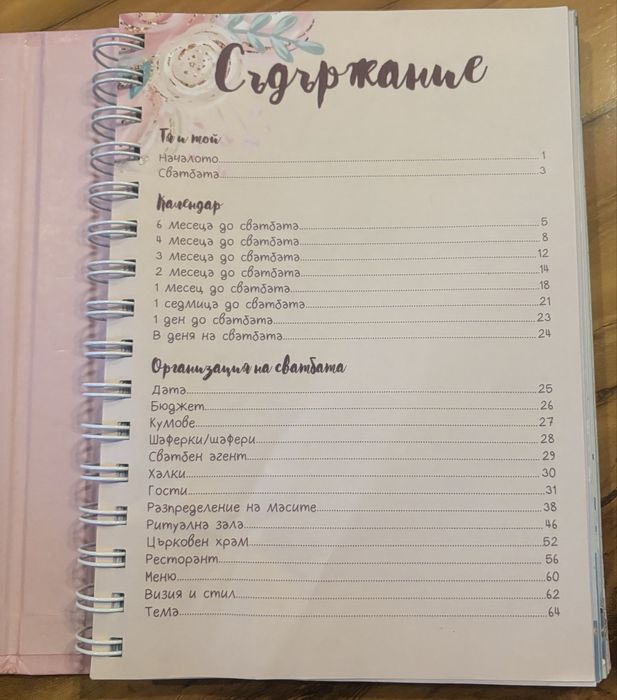 Съдържание
Тя и той
Началото 1
Сватбата 3
Календар
6 месеца до сватбата 5
4 месеца до сватбата 8
3 месеца до сватбата 12
2 месеца до сватбата 14
1 месец до сватбата 18
1 седмица до сватбата 21
1 ден до сватбата 23
В деня на сватбата 24
Организация на сватбата
Дата 25
Бюджет 26
Кумове 27
Шаферки/шафери 28
Сватбен агент 29
Халки 30
Гости 31
Разпределение на масите 38
Ритуална зала 46
Църковен храм 52
Ресторант 56
Меню 60
Визия и стил 62
Тема 64